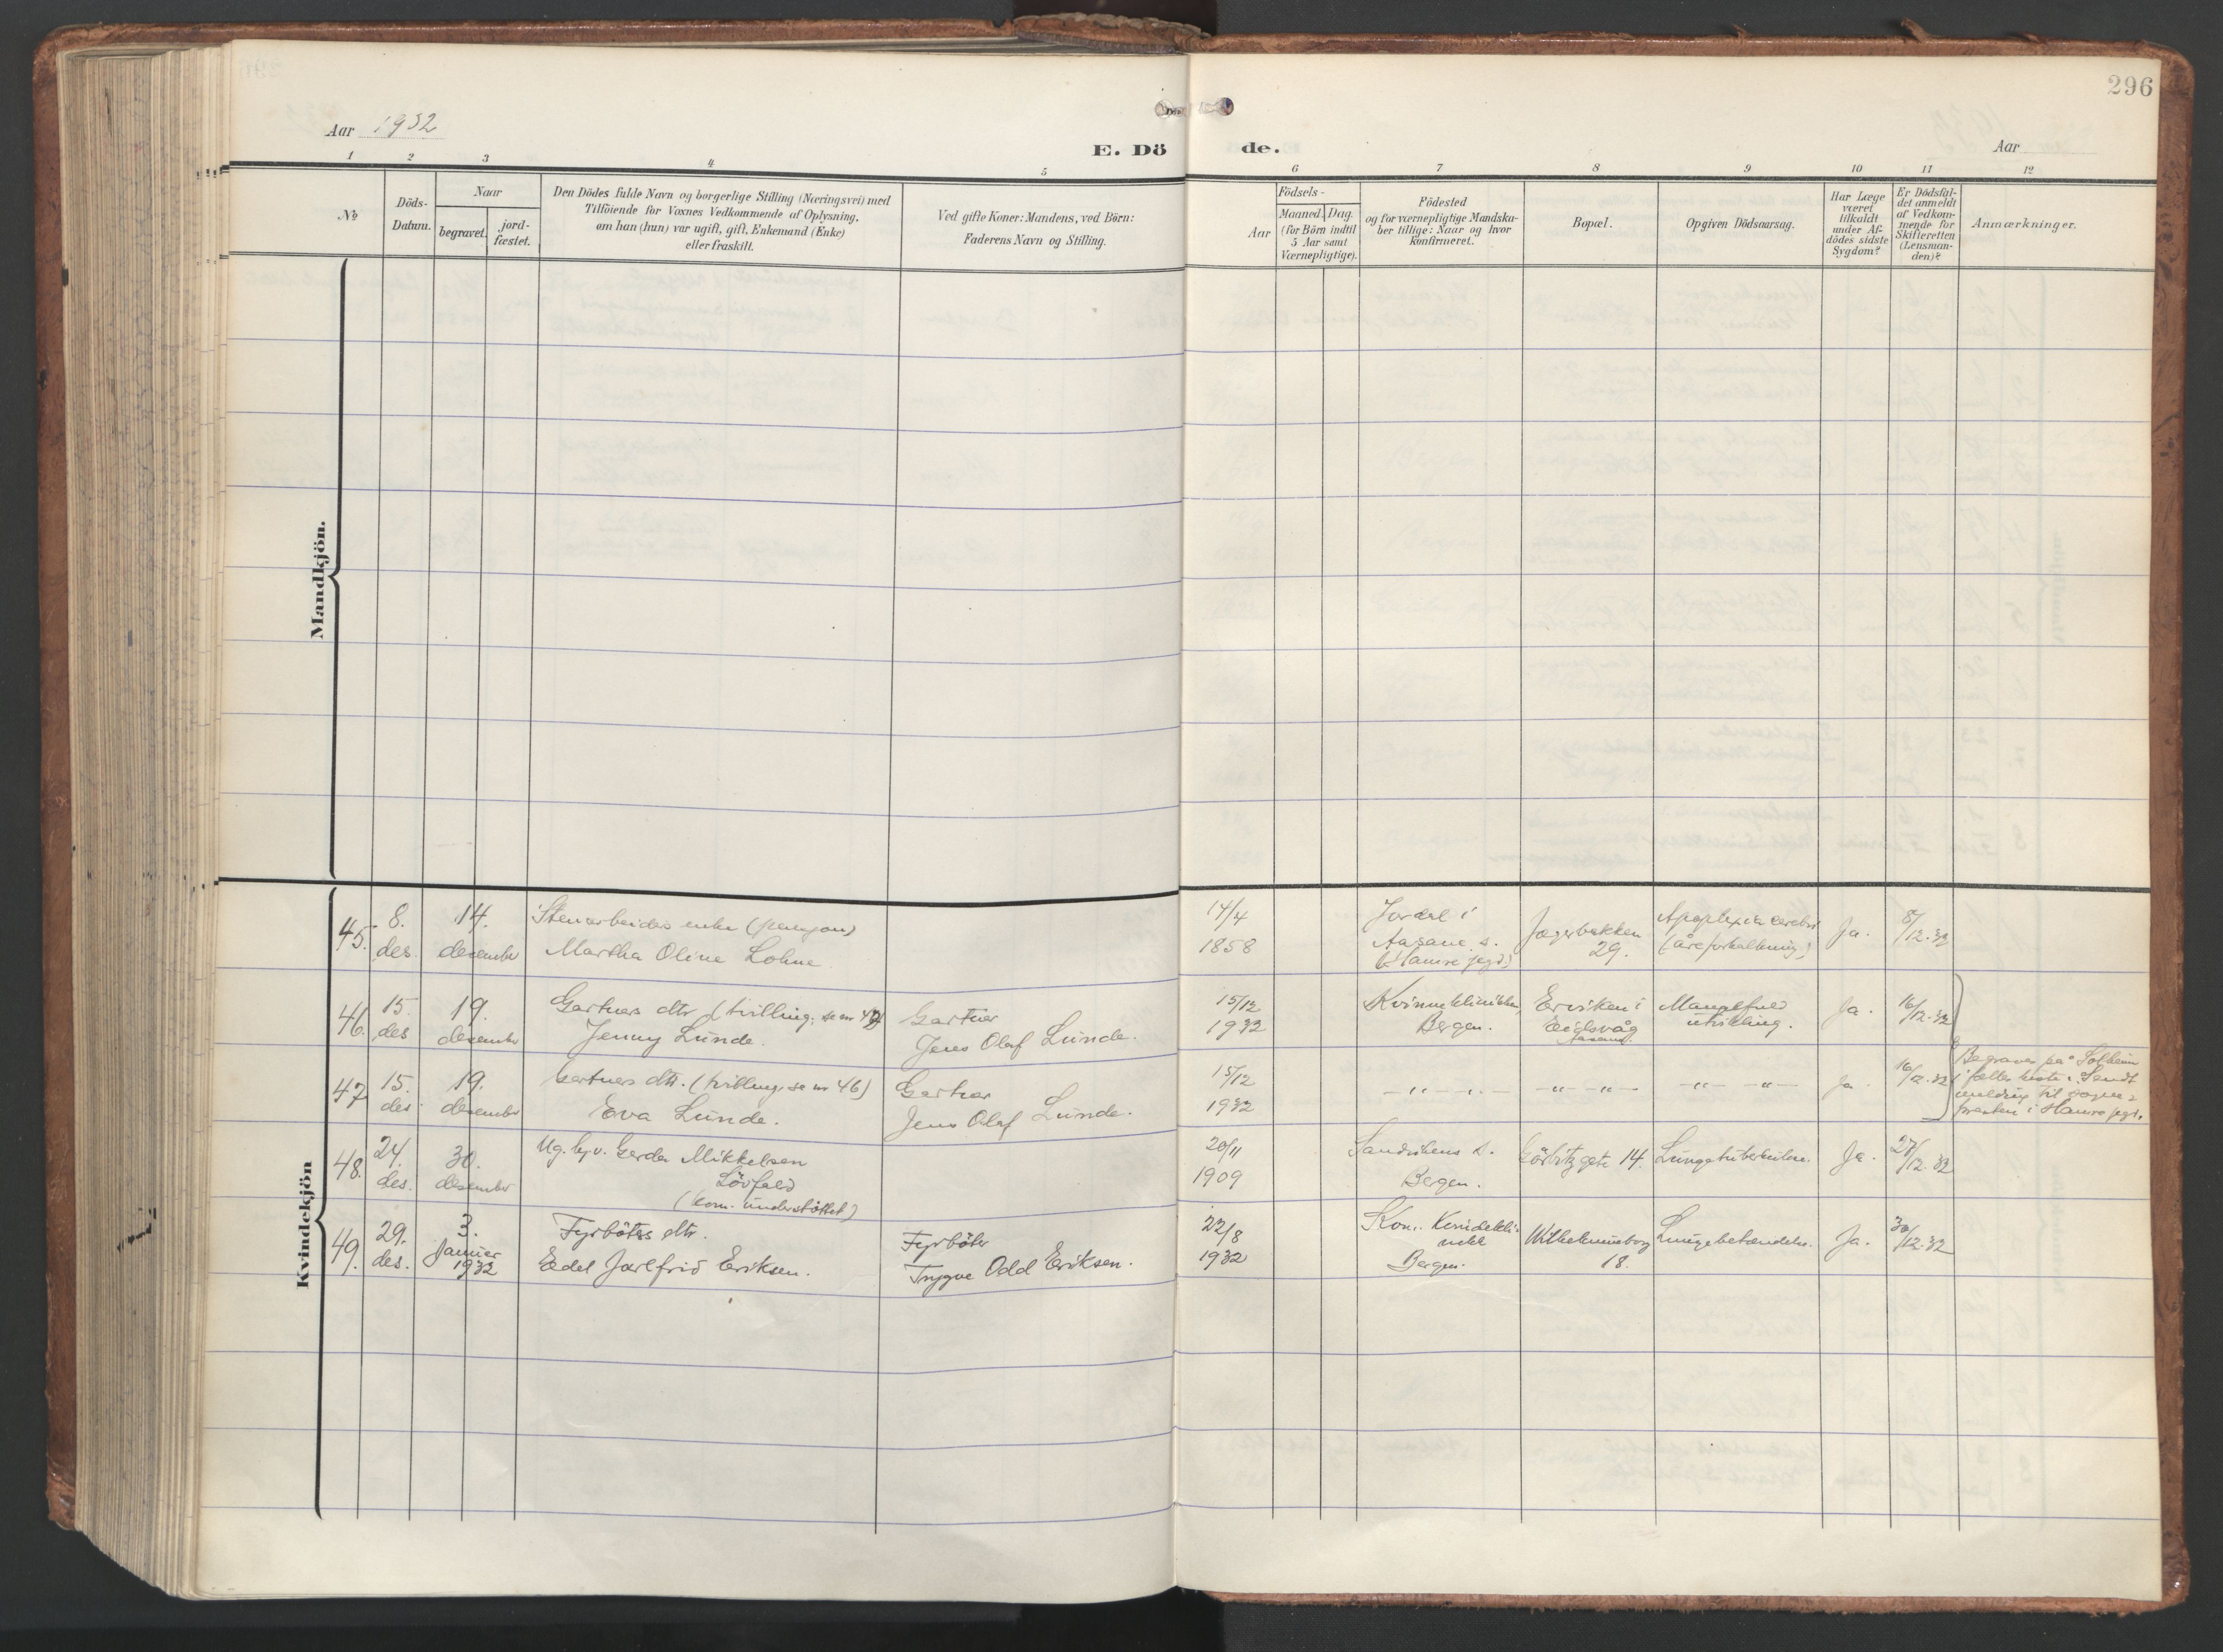 296
Aar 1932
E. Dö
de.
Aar
1 2 3 4 5 6 7 8 9 10 11 12
No
Döds-
Datum.
Naar
begravet.
jord-
fæstet.
Den Dödes fulde Navn og borgerlige Stilling (Næringsvei) med
Tilföiende for Voxnes Vedkommende af Oplysning,
om han (hun) var ugift, gift, Enkemand (Enke)
eller fraskilt.
Ved gifte Koner: Mandens, ved Börn:
Faderens Navn og Stilling.
Födsels-
Aar
Maaned. Dag.
(for Börn indtil
5 Aar samt
Værnepligtige).
Födested
og for værnepligtige Mandska-
ber tillige: Naar og hvor
Konfirmeret.
Bopæl.
Opgiven Dödsaarsag.
Har Læge
været
tilkaldt
under Af-
dödes sidste
Sygdom?
Er Dödsfal-
det anmeldt
af Vedkom-
mende for
Skifteretten
(Lensman-
den)?
Anmærkninger.
Mandkjön.
Kvindekjön
45. 8.
des.
14.
desember
Stenarbeiders enke
Martha Oline Lohne
14/4
1858
Jordal i
Aasane s.
(Hamre pegd.)
Jægerbakken
29.
Apoplexia cerebri
(åreforkalkning)
Ja.
8/12.32
46. 15.
des
19.
desember
Gartners dtr. (tvilling; se nr 47)
Jenny Lunde.
Gartner
Jens Olaf Lunde.
15/12
1932
Kvinneklinikken,
Bergen.
Erviken i
Eidsvåg
Aasane.
Mangelfuld
utvikling.
Ja.
16/12.32
47 15.
des.
19.
desember
Gartners dtr. (tvilling; se nr 46)
Eva Lunde.
Gartner
Jens Olaf Lunde.
15/12
1932
— " — " —
— " — " —
— " — " —
Ja.
16/12.32
Begraves på Solheim
i felles kiste. Sendt
melding til sogne-
presten i Hamre pegd.
48. 24.
des.
30.
desember
Ug. hj.v. Gerda Mikkelsen
Lövfald
(kom. understöttet)
20/11
1909
Sandvikens s.
Bergen.
Görbitzgate 14.
Lungetuberkulose.
Ja.
27/12.32
49. 29.
des.
3.
Januar
1932
Fyrböters dtr.
Edel Jarlfrid Eriksen.
Fyrböter
Trygve Odd Eriksen.
22/8
1932
Kom. Kvindekli-
nikk
Bergen.
Wilhelminsborg
18.
Lungebetendelse.
Ja.
30/12.32